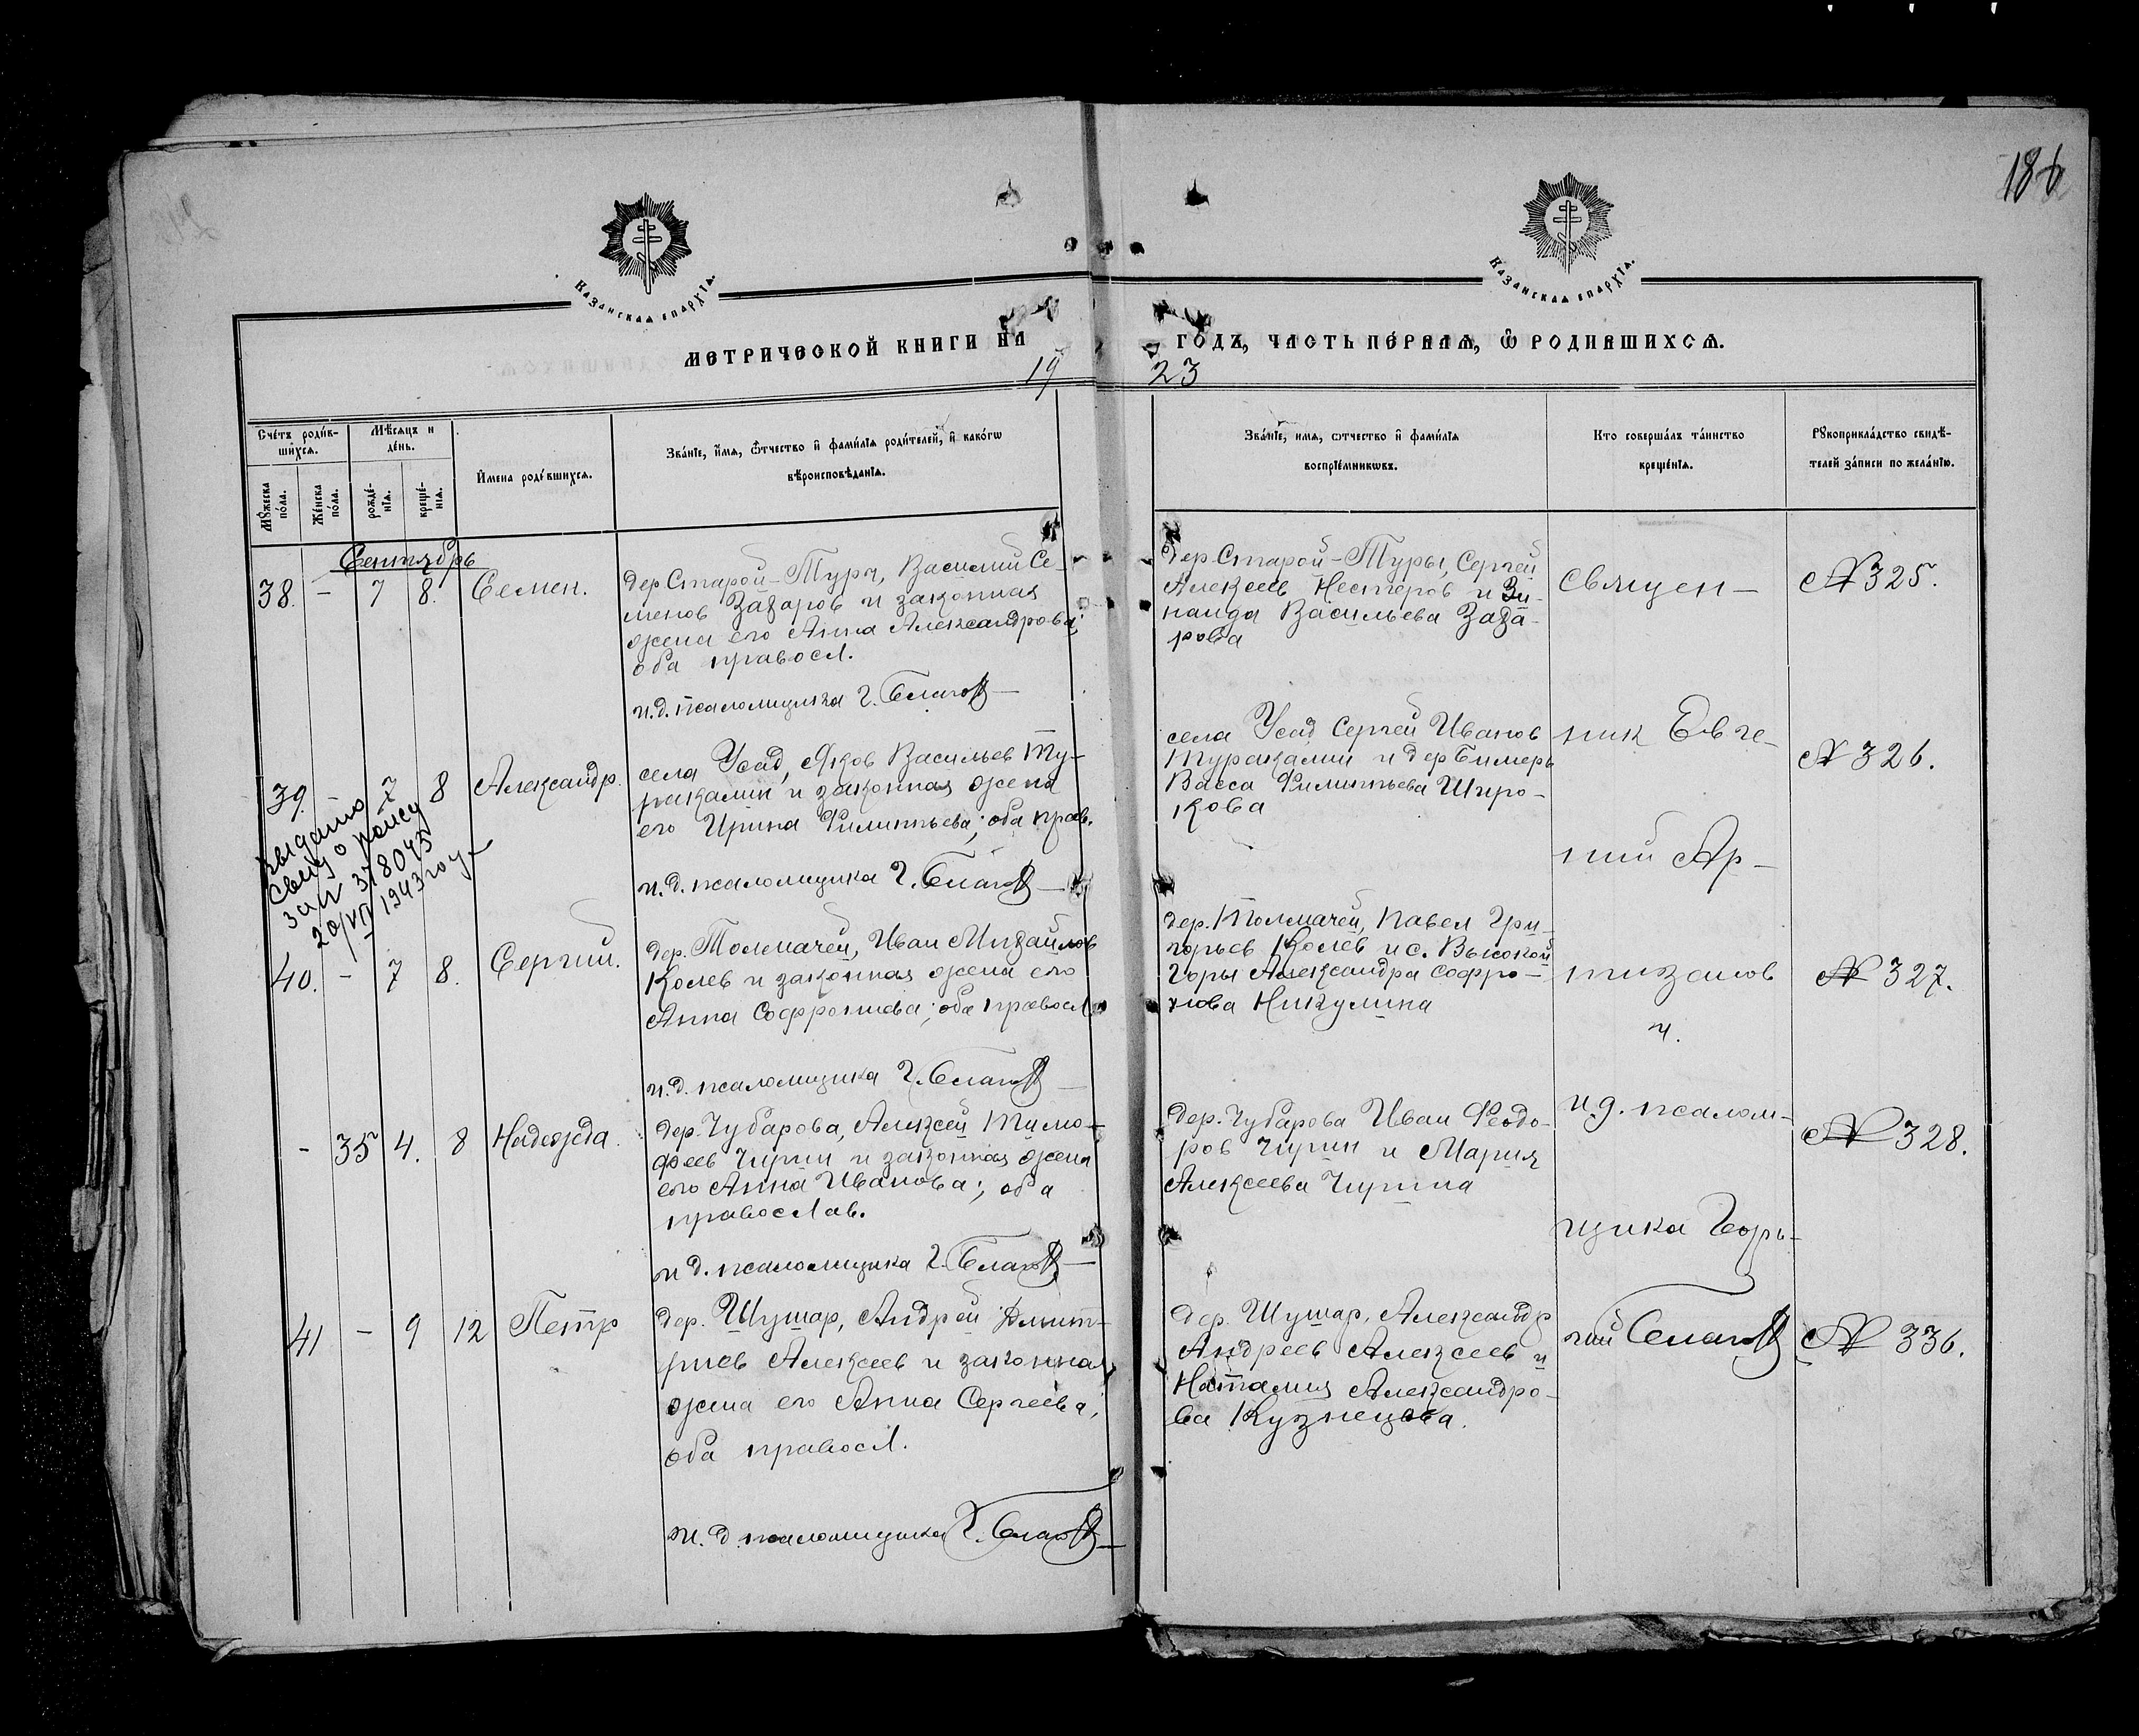 186
КАЗАНСКАѦ ЕПАРХІѦ.
КАЗАНСКАѦ ЕПАРХІѦ.
МЕТРИЧЕСКОЙ КНИГИ НА
19
ГОДЪ, ЧАСТЬ ПЕРВАѦ, Ѽ РОДИВШИХСѦ.
23
Сче́тъ роди́в-
шихсѧ.
Мѣсѧцъ и
де́нь.
Мꙋ́жеска
по́ла.
Же́нска
по́ла.
рожде́-
нїѧ.
креще́-
нїѧ.
И҆мена роди́вшихсѧ.
Зва́нїе, и҆́мѧ, ѻ҆́тчество и҆ фами́лїѧ роди́телей, и҆ како́гѡ
вѣроисповѣ́данїѧ.
Зва́нїе, имѧ, ѻтчество и҆ фами́лїѧ
воспрїе́мникѡвъ.
Кто соверша́лъ та́инство
креще́нїѧ.
Рꙋкоприкла́дство свидѣ́-
телей за́писи по жела́нїю.
Сентябрь
38. - 7 8. Семен.
дер Старой-Туры, Василий Се-
менов Захаров и законная
жена его Анна Александрова;
оба правосл.
и.д. псаломщика Г. Благов
дер Старой-Туры, Сергей
Алексеев Нестеров и Зи-
наида Васильева Заха-
рова
Священ-
№ 325.
39. - 7 8 Александр.
выдано
свид о рожд
за № 378045
20/VII 1943 году
села Усад, Яков Васильев Ту-
ракалин и законная жена
его Ирина Филиппьева; оба прав.
и.д. псаломщика Г. Благов
села Усад Сергей Иванов
Туракалин и дер Бимерь
Васса Филиппьева Широ-
кова
ник Евге-
ний Ар-
№ 326.
40. - 7 8. Сергий.
дер. Толмачей, Иван Михайлов
Колев и законная жена его
Анна Софрониева; оба правосл
и.д. псаломщика Г. Благов
дер. Толмачей, Павел Гри-
горьев Колев и с. Высокой
Горы Александра Софро-
нова Никулина
и.
№ 327.
- 35 4. 8 Надежда.
дер. Чубарова, Алексей Тимо-
феев Чирин и законная жена
его Анна Иванова; оба
православ.
и д. псаломщика Г. Благов
дер. Чубарова Иван Феодо-
ров Чирин и Мария
Алексеева Чирина
и.д. псалом-
щика Геор-
№ 328.
41 - 9 12 Петр
дер. Шушар, Андрей Дмит-
риев Алексеев и законная
жена его Анна Сергеева,
оба правосл.
и. д. псаломщика Г. Благов
дер. Шушар, Александр
Андреев Алексеев и
Наталия Александро-
ва Кузнецова.
гий Благов
№ 336.